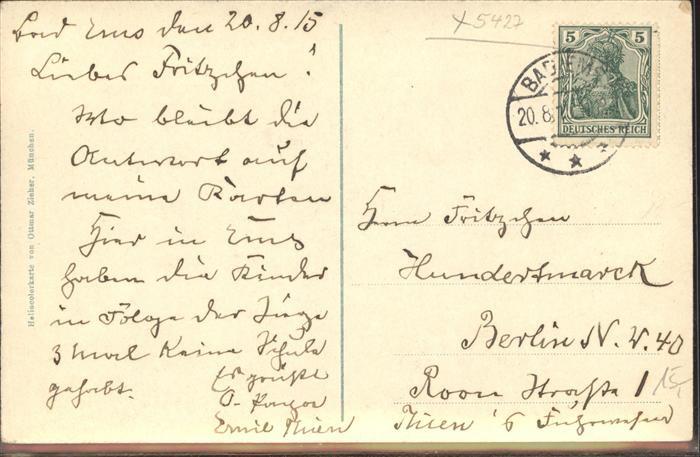 Bad Ems den 20.8.15
Liebes Fritzchen!
Wo bleibt die
Antwort auf
meine Karten
Hier in Ems
haben die Kinder
in Folge der Siege
3 mal keine Schule
gehabt. Es grüßt
O-
Emil Thien
Heliocolorkarte von Ottmar Zieher, München.
5427
5 5
DEUTSCHES REICH
BAD EMS
20.8.
Herrn Fritzchen
Hundertmarck
Berlin N.W.40
Roon Straße 1
Thien's
15